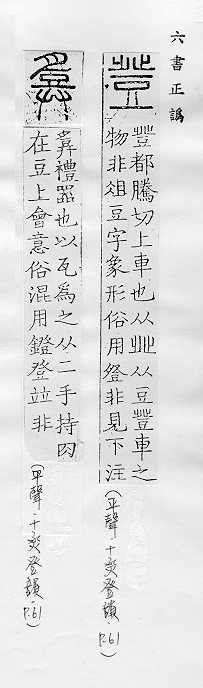 六書正譌
都騰切上車也从从豆車之
物非俎豆字象形俗用登非見下注
(平聲．十登韻．P.61)
禮器也以瓦為之从二手持肉
在豆上會意俗混用鐙登竝非
(平聲．十登韻．P.61)